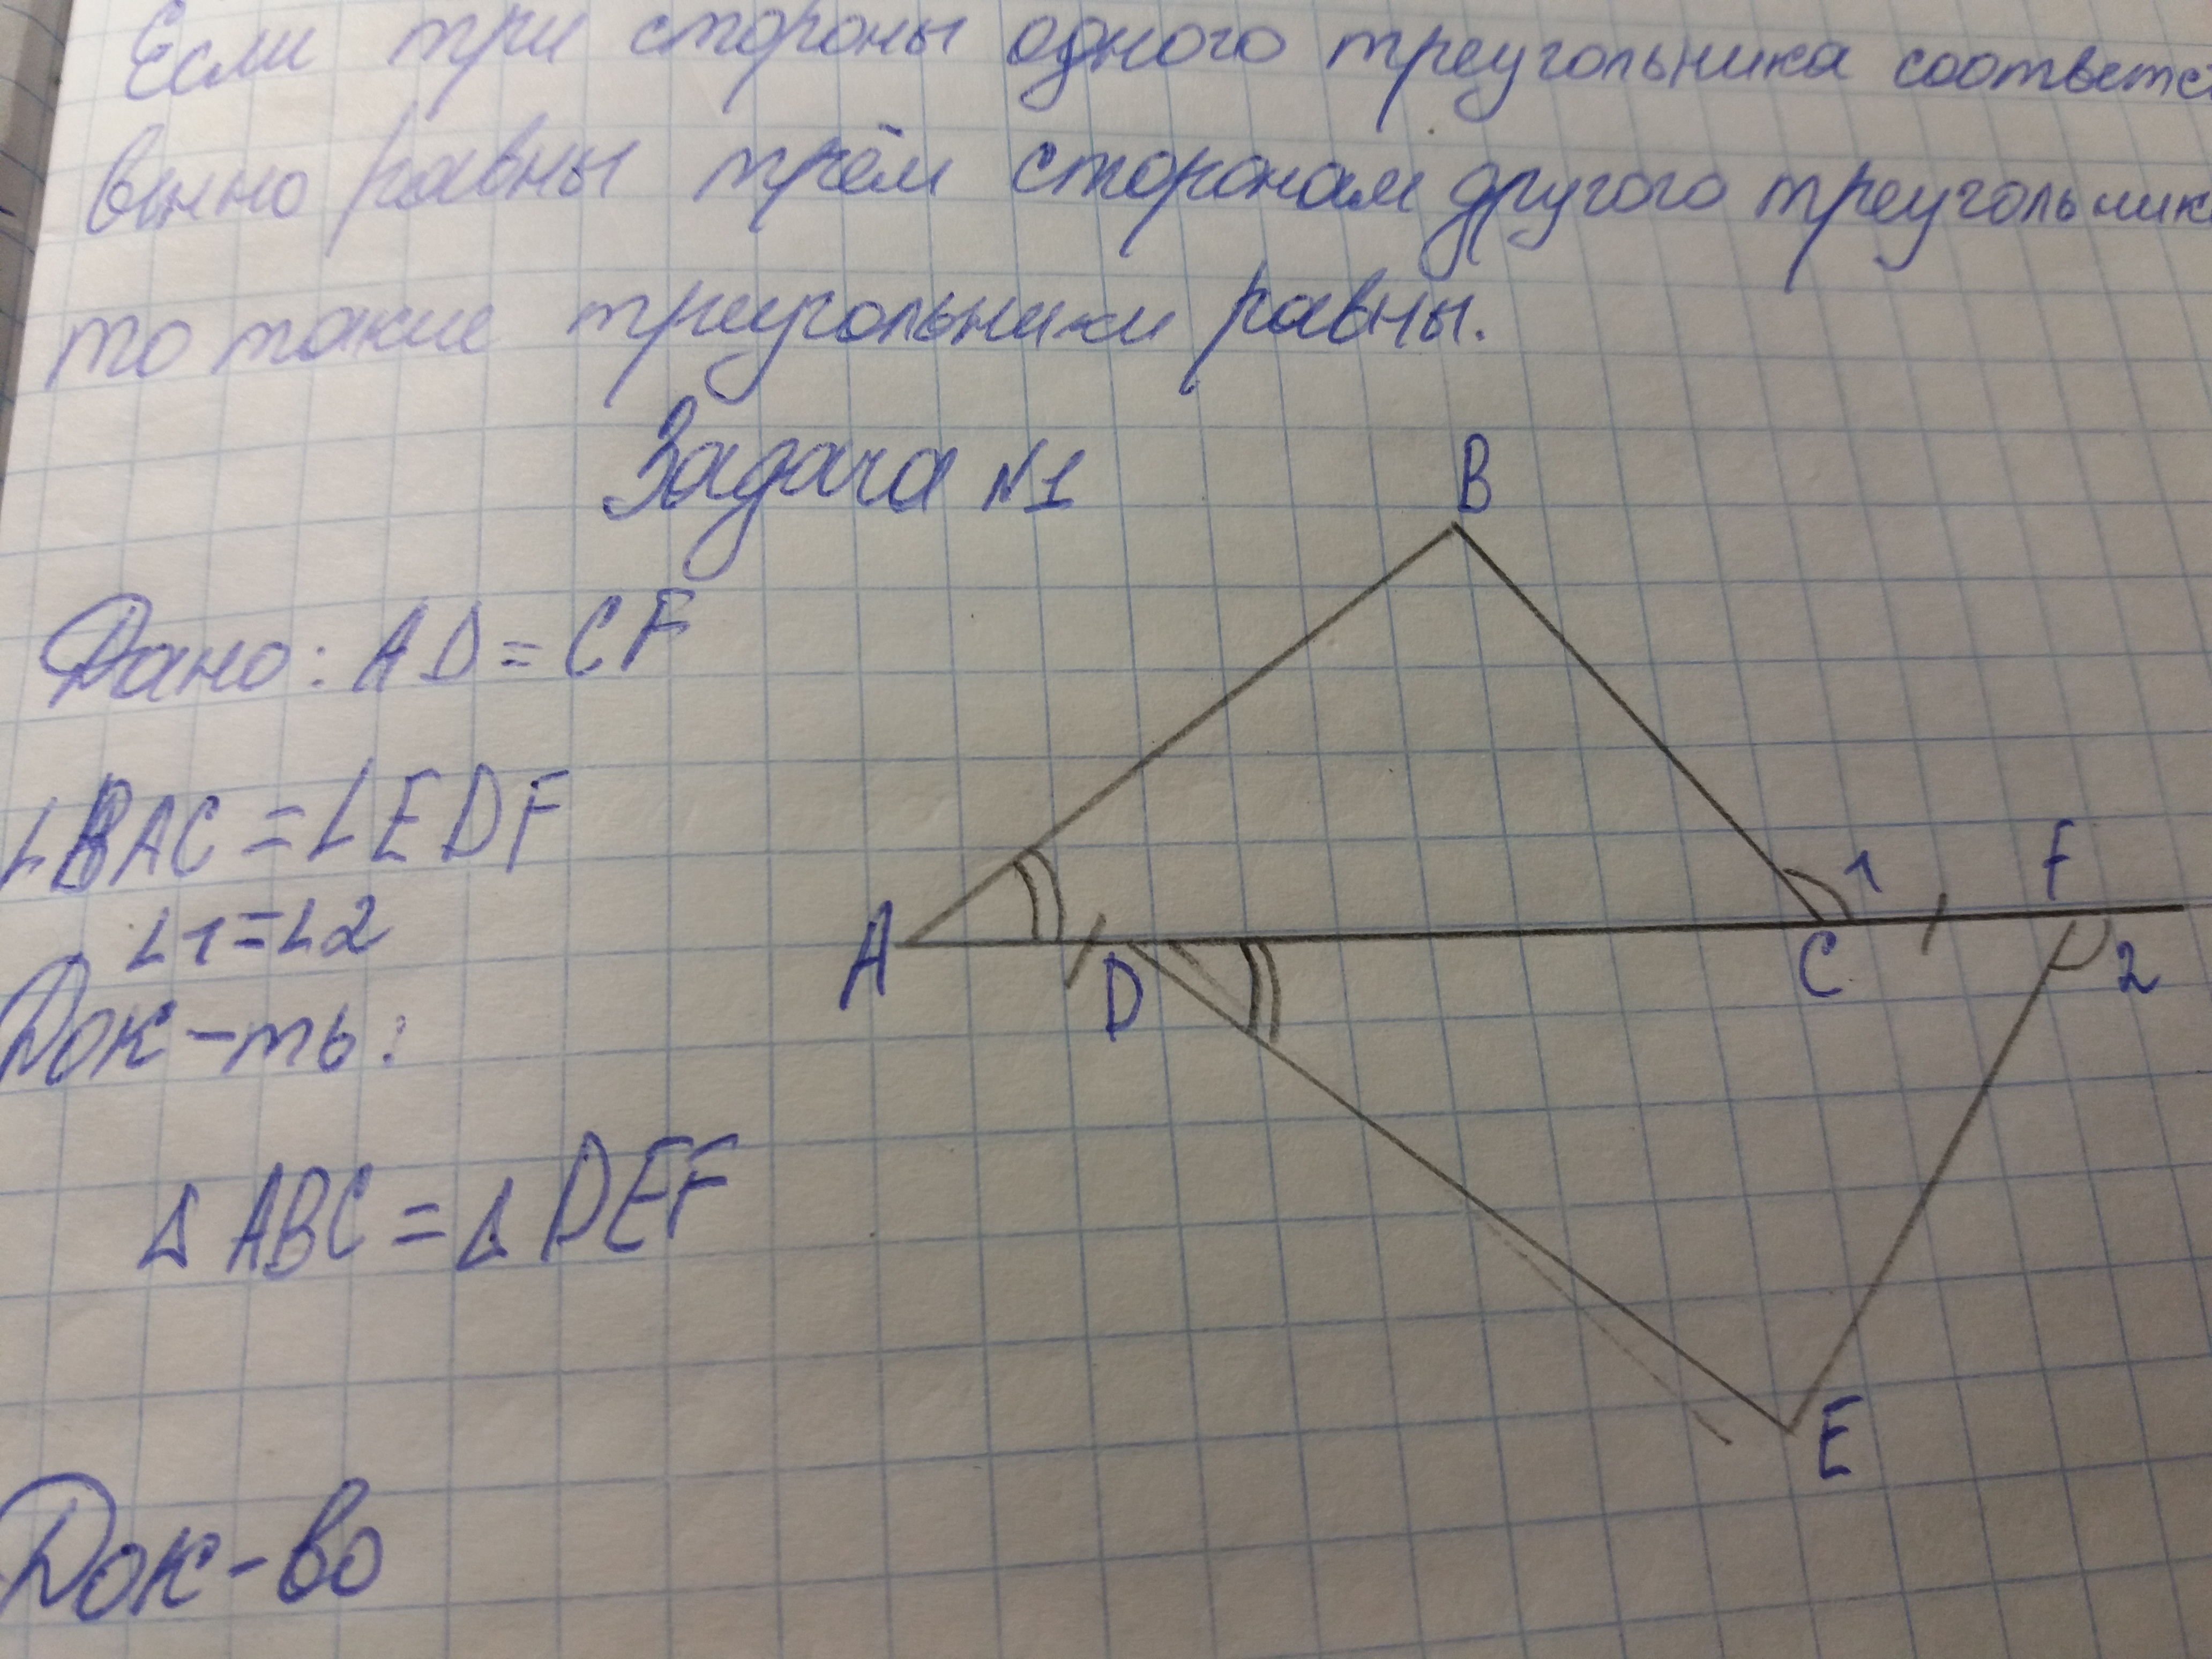 Если три стороны одного треугольника соответст
венно равны трём сторонам другого треугольник
то такие треугольники равны.
Задача №1
Дано: AD = CF
∠BAC = ∠EDF
∠1=∠2
Док-ть:
Δ ABC = Δ DEF
Док-во
B
A
D
C
1
F
2
E